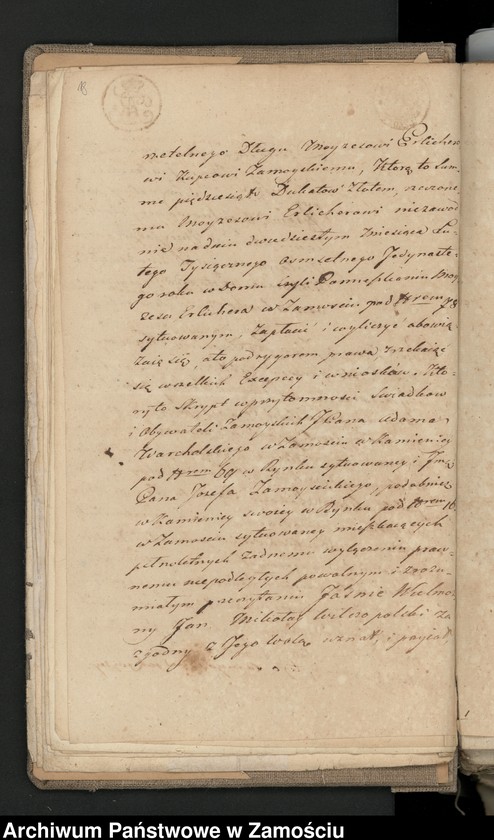 rzetelnego Długu Moyzesowi Erlichero
wi Kupcowi Zamoyskiemu, Którę to Sum
mę pięćdziesiąt Dukatów Złotem, rzeczone
mu Moyzesowi Erlicherowi niezawod
nie na dniu dwudziestym Miesiąca Lu
tego Tysiącznego osmsetnego Jedynaste
go roku w Domu czyli Pomieszkaniu Moy
zesza Erlichera w Zamościu pod Nrem 78
sytuowanym, zapłacić i wyliczyć obowią
zuię się, a to pod rygorem prawa zrzekaiąc
się wszelkich Excepcyi i wniosków. Któ
ry to Skrypt w przytomności Świadków
i Obywateli Zamoyskich JPana Adama
Warcholskiego w Zamościu w Kamienicy
pod Nrem 60 w Rynku sytuowaney i Jmć
Pana Józefa Zamoyskiego, podobnież
w Kamienicy swoiey w Rynku pod Nrem 16
w Zamościu sytuowaney mieszkaiących
pełnoletnych żadnemu wyłączeniu praw
nemu niepodległych powolnym i zrozu
miałym przeczytaniu Jaśnie Wielmo
żny Jan Mikołay Wilczopolski za
zgodny z Jego wolą uznał, i pogiął
Archiwum Państwowe w Zamościu